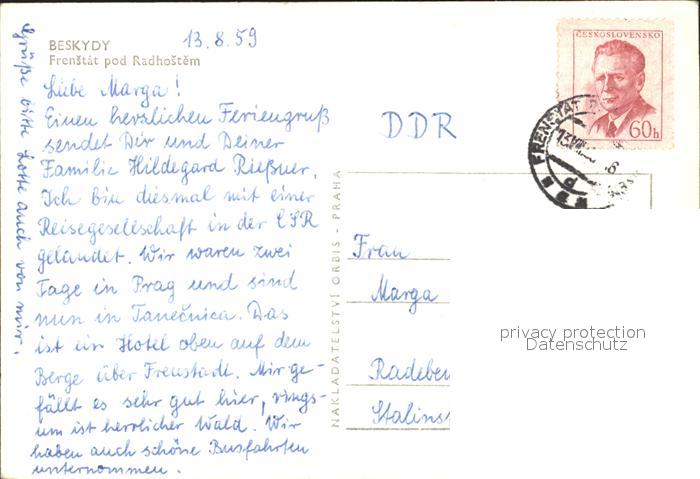 13.8.59
BESKYDY
Frenštát pod Radhoštěm
Liebe Marga!
Einen herzlichen Feriengruß
sendet Dir und Deiner
Familie Hildegard Rießner.
Ich bin diesmal mit einer
Reisegesellschaft in der ČSR
gelandet. Wir waren zwei
Tage in Prag und sind
nun in Tanečnica. Das
ist ein Hotel oben auf dem
Berge über Frenstadt. Mir ge-
fällt es sehr gut hier, rings-
um ist herrlicher Wald. Wir
haben auch schöne Busfahrten
unternommen.
Grüße bitte Lotte auch von mir.
NAKLADATELSTVÍ ORBIS - PRAHA
ČESKOSLOVENSKO
60h
FRENŠTÁT P.
DDR
Frau
Marga
Radebeu
Stalins
privacy protection
Datenschutz